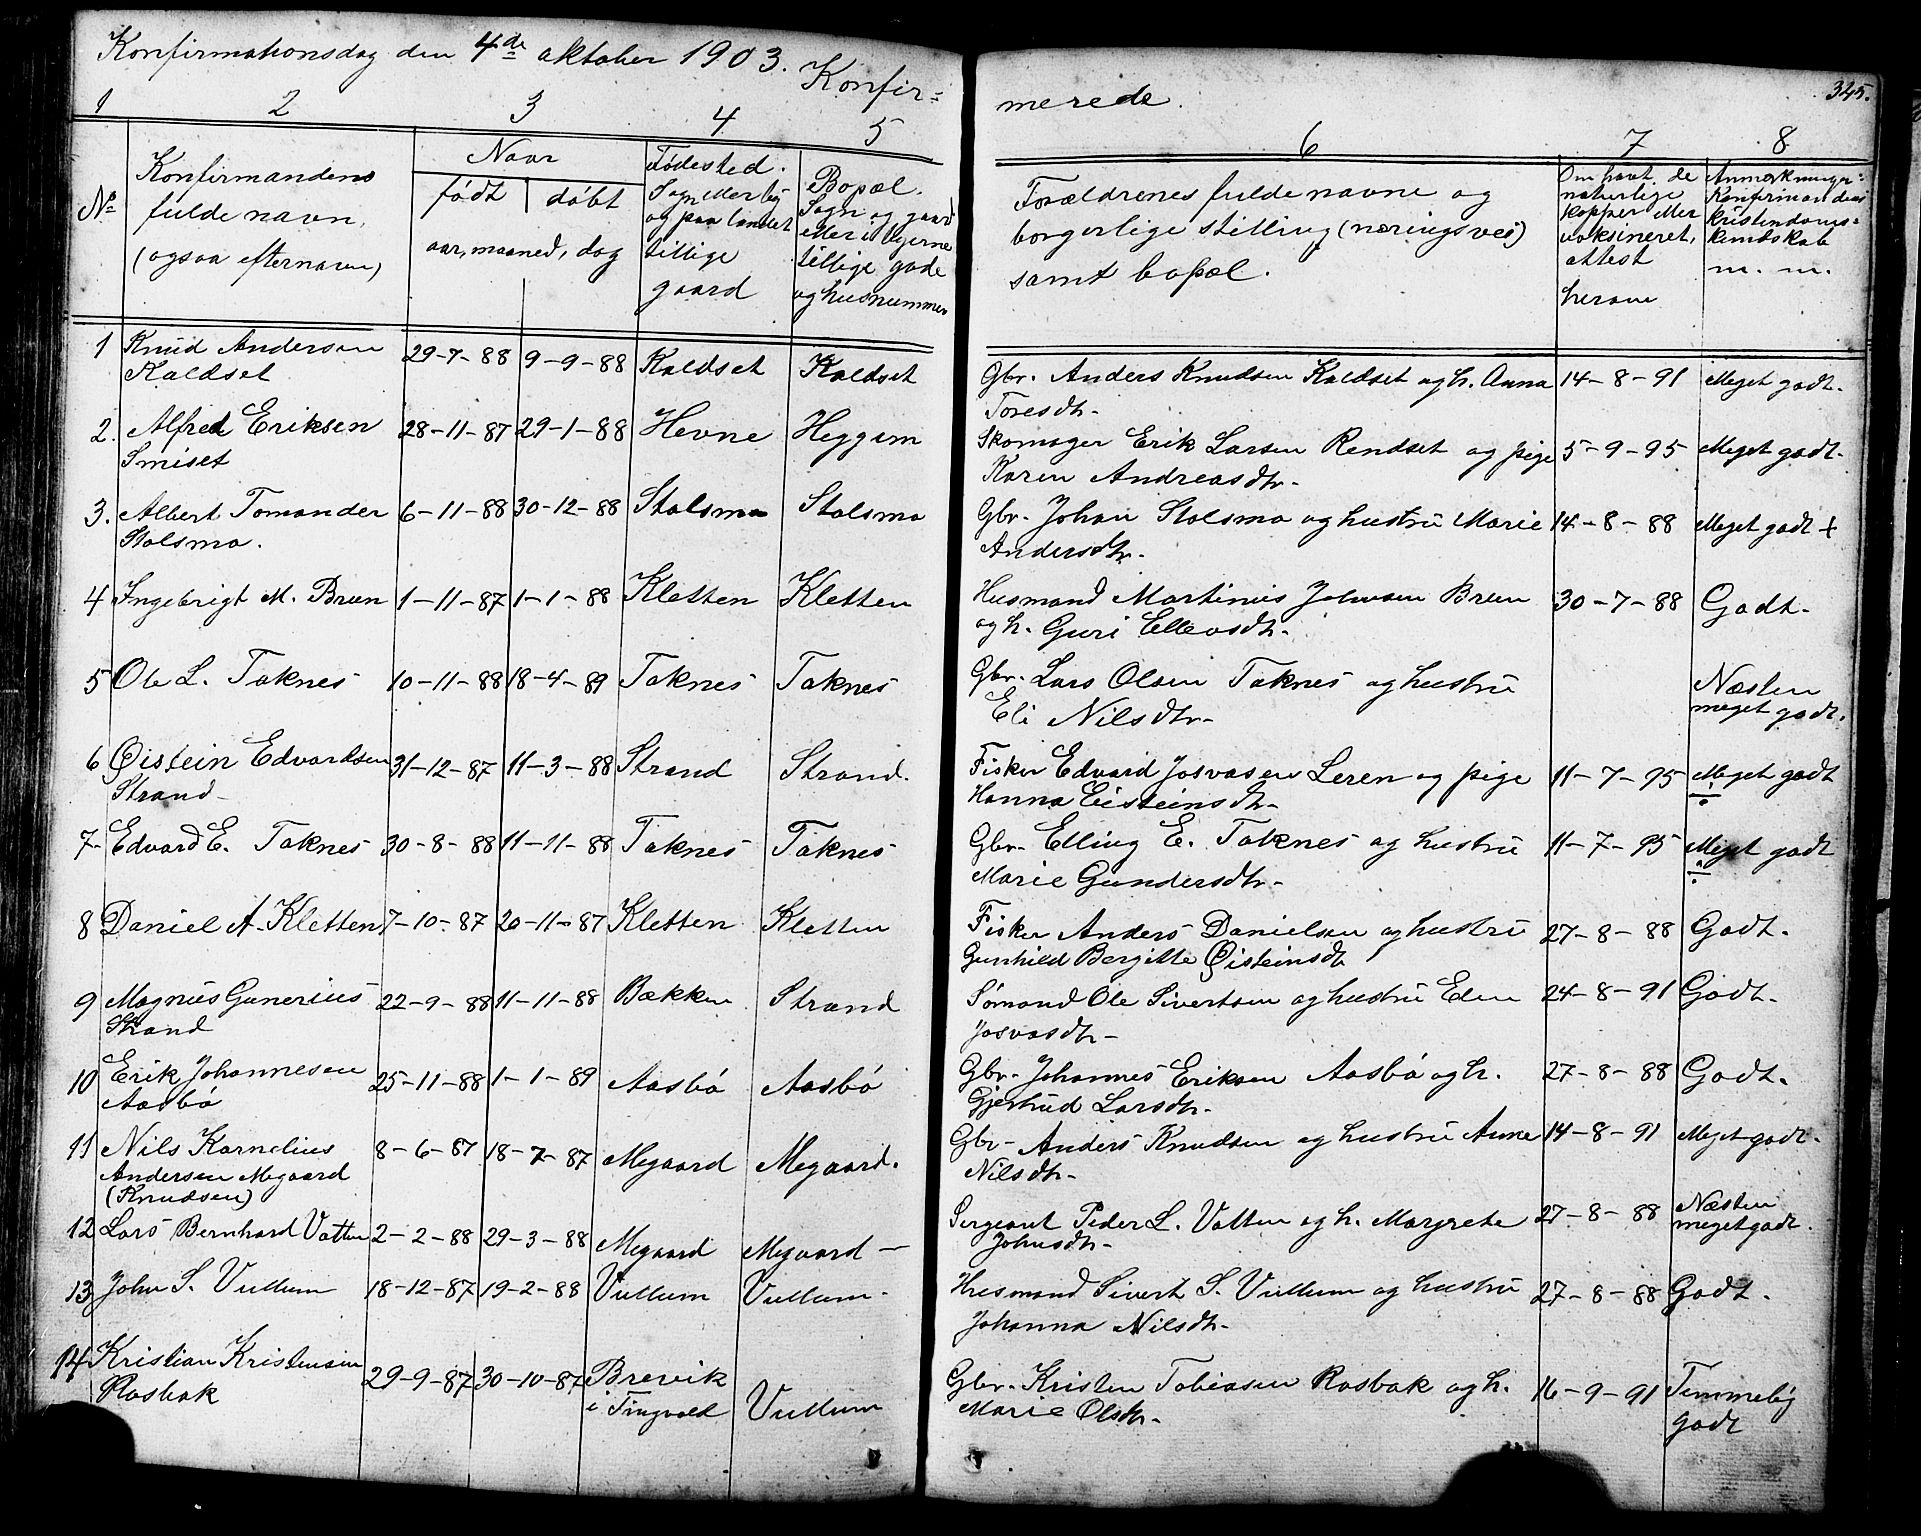 Konfirmationsdag den 4de oktober 1903. Konfir=
merede.
345.
1 2 3 4 5
6 7 8
No
Konfirmandens
fulde navn,
(ogsaa efternavn)
Naar
født | døbt
aar, maaned, dag
Fødested.
Sogn eller by
og paa landet
tillige
gaard
Bopæl.
Sogn og gaard
eller i byerne
tillige gade
og husnummer
Forældrenes fulde navne og
borgerlige stilling (næringsvei)
samt bopæl.
Om havt de
naturlige
kopper eller
vaksineret,
attest
herom
Anmerkninger:
Konfirmandens
kristendoms=
kundskab
m. m.
1 Knud Andersen 29-7-88 9-9-88 Kaldset Kaldset Gbr. Anders Knudsen Kaldset og h. Anna 14-8-91 Meget godt.
Kaldset Toresdtr-
2. Alfred Eriksen 28-11-87 29-1-88 Hevne Heggem Skomager Erik Larsen Rendset og pige 5-9-95 Meget godt.
Smiset Karen Andreasdtr-
3. Albert Tomander 6-11-88 30-12-88 Stolsmo Stolsmo Gbr. Johan Stolsmo og hustru Marie 14-8-88 Meget godt +
Stolsmo. Andersdtr.
4 Ingebrigt M. Bruun 1-11-87 1-1-88 Kletten Kletten Husmand Martinus Johnsen Bruun 30-7-88 Godt-
og h. Guri Ellevsdtr-
5 Ole L. Taknes 10-11-88 18-4-89 Taknes Taknes Gbr. Lars Olsen Taknes og hustru Næsten
Eli Nilsdtr- meget godt.
6 Øistein Edvardsen 31-12-87 11-3-88 Strand Strand. Fisker Edvard Josvasen Leren og pige 11-7-95 Meget godt
Strand- Hanna Eisteinsdtr- ÷
7- Edvard E. Taknes 30-8-88 11-11-88 Taknes Taknes Gbr- Elling E. Taknes og hustru 11-7-95 Meget godt
Marie Gundersdtr- ÷
8 Daniel A. Kletten 7-10-87 20-11-87 Kletten Kletten Fisker Anders Danielsen og hustru 27-8-88 Godt.
Gunhild Bergitte Øisteinsdt
9 Magnus Gunerius 22-9-88 11-11-88 Bækken Strand Sømand Ole Sivertsen og hustru Elen 24-8-91 Godt.
Strand Josvasdtr-
10 Erik Johannesen 25-11-88 1-1-89 Aasbø Aasbø Gbr- Johannes Eriksen Aasbø og h. 27-8-88 Godt.
Aasbø Gjertrud Larsdtr-
11 Nils Kornelius 8-6-87 18-7-87 Megaard Megaard. Gbr- Anders Knudsen og hustru Anne 14-8-91 Meget godt-
Andersen Megaard Nilsdtr-
(Knudsen)
12 Lars Bernhard Vatten 2-2-88 29-3-88 Megaard Megaard- Sergeant Peder L. Vatten og h. Margrete 27-8-88 Næsten
Johnsdtr- meget godt.
13 John S. Vullum 18-12-87 19-2-88 Vullum Vullum- Husmand Sivert S. Vullum og hustru 27-8-88 Godt.
Johanna Nilsdtr-
14 Kristian Kristensen 29-9-87 30-10-87 Brevik Vullum Gbr- Kristen Tobiasen Rosbak og h. 16-9-91 Temmelig
Rosbak i Tingvold Marie Olsdtr- godt